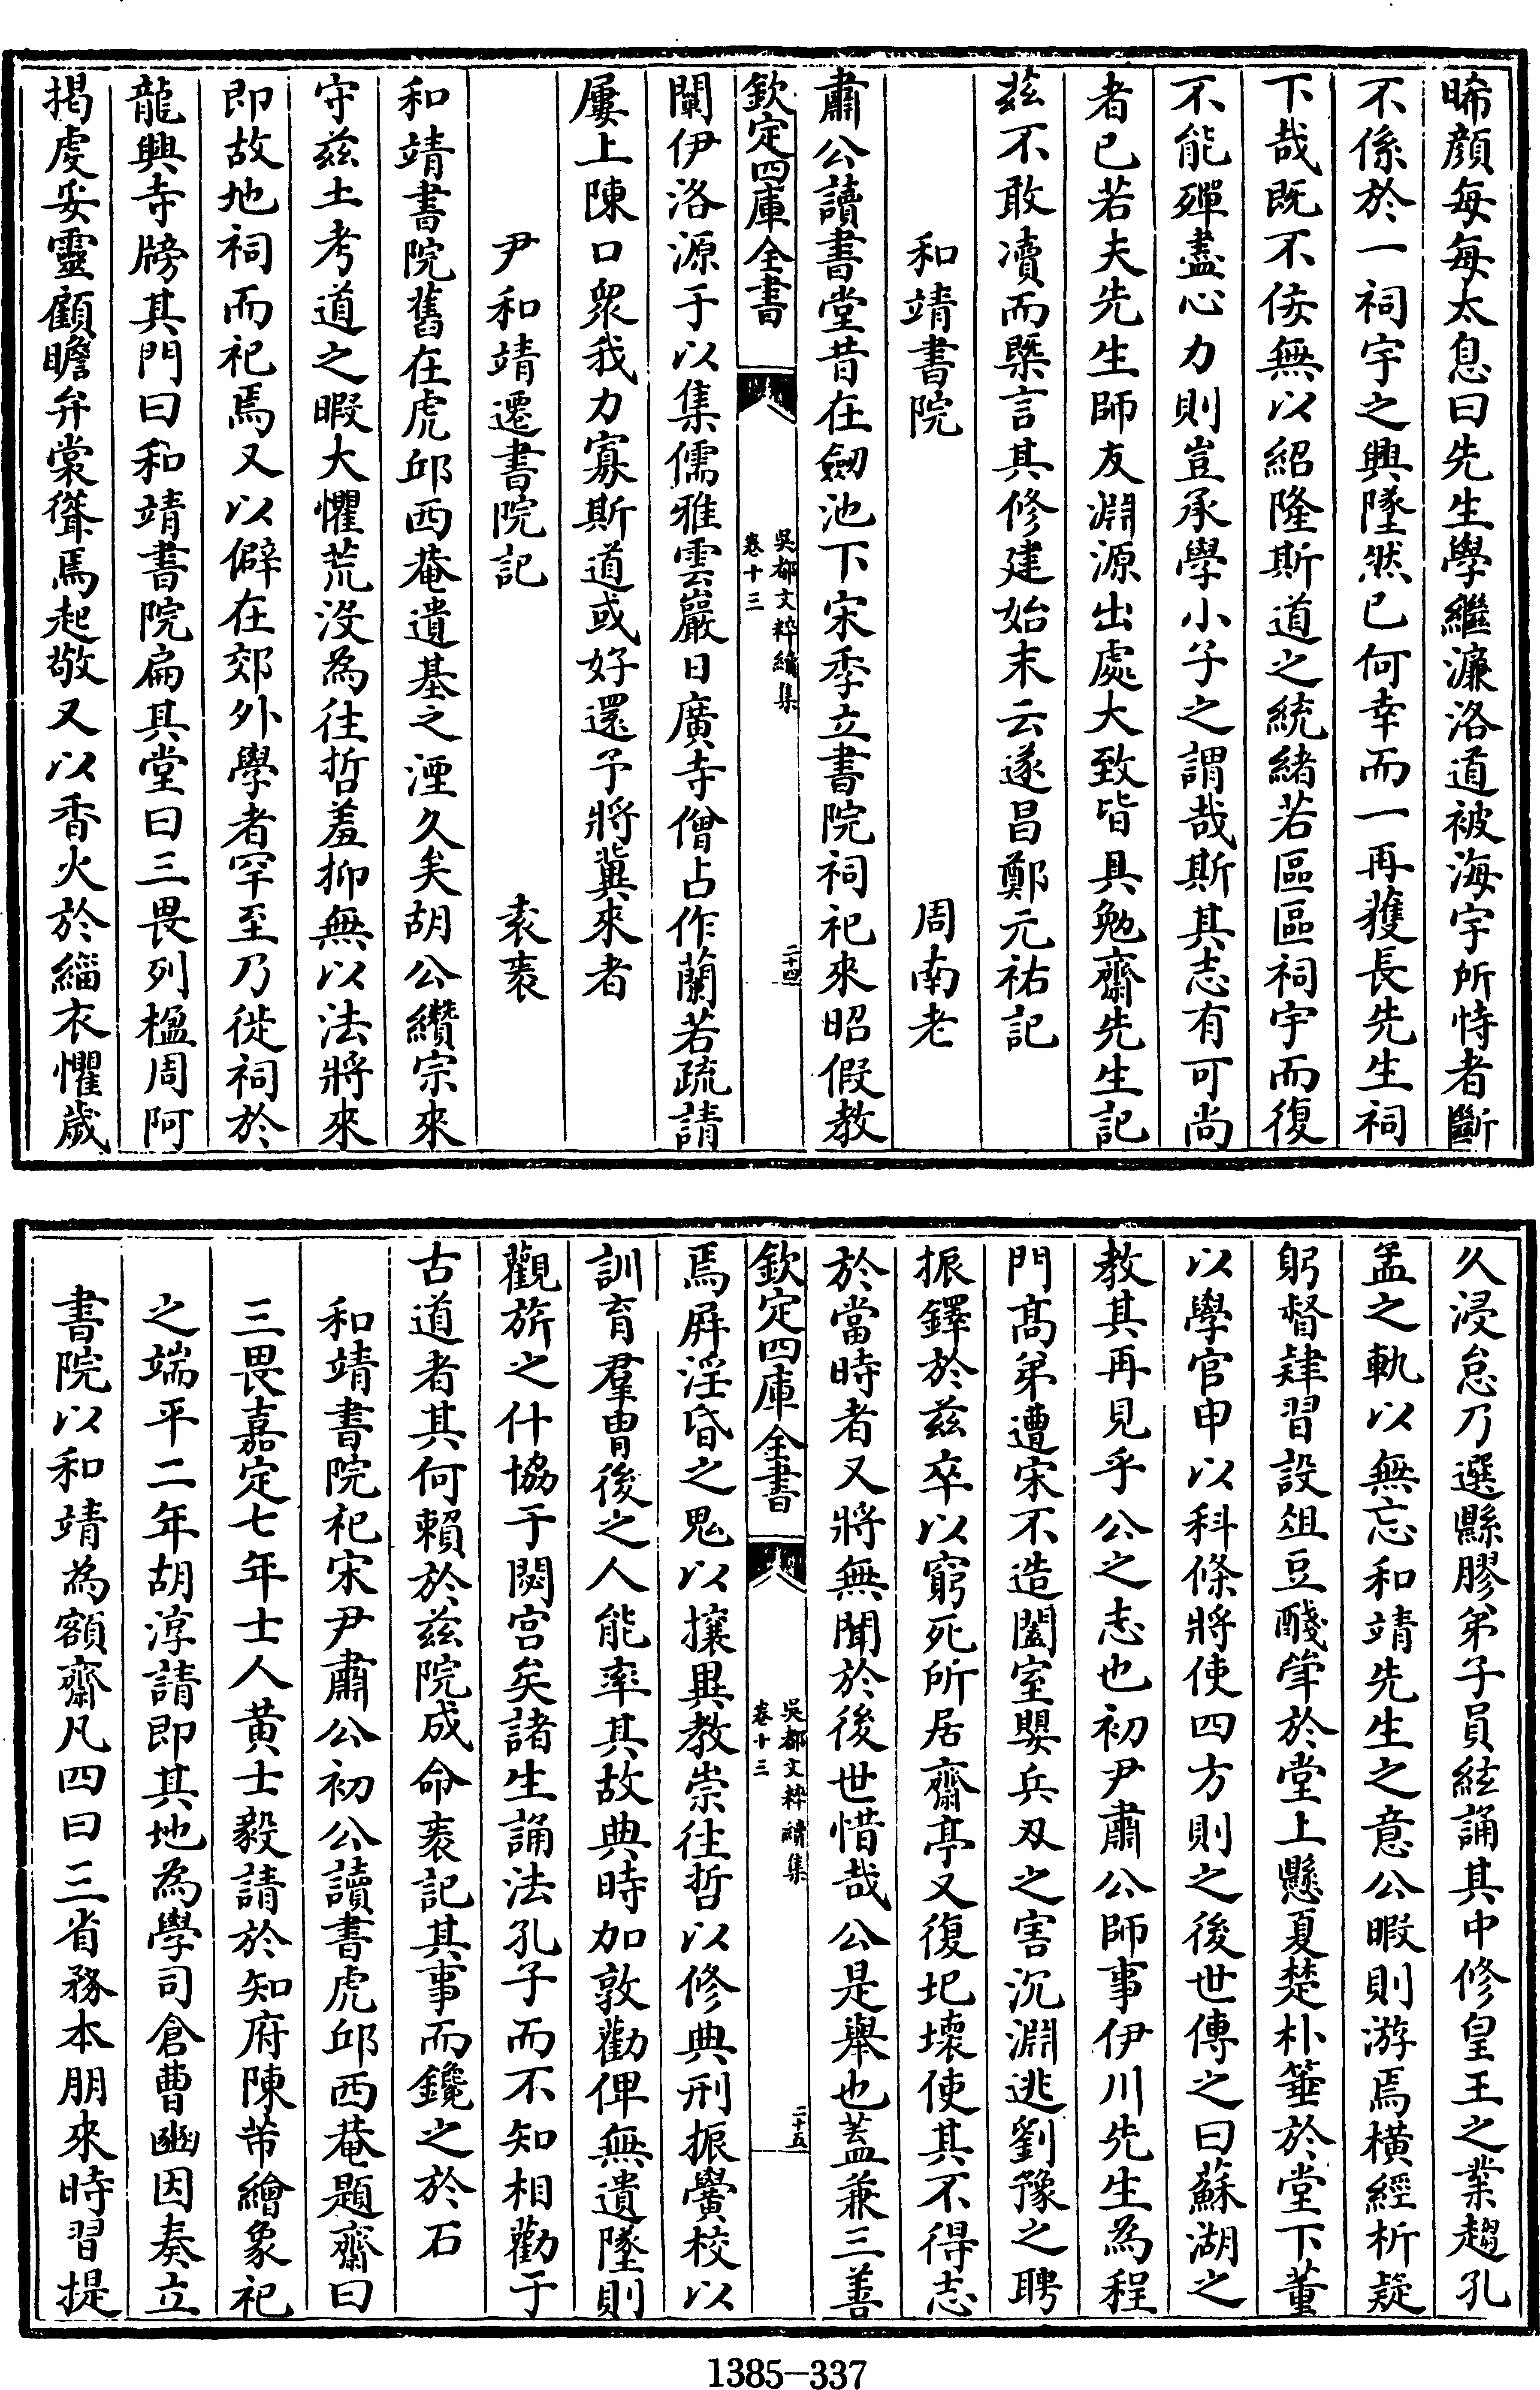 晞顔每每太息曰先生學繼濂洛道被海宇所恃者斷
不係於一祠宇之興墜然已何幸而一再獲長先生祠
下哉既不侫無以紹隆斯道之統緒若區區祠宇而復
不能殫盡心力則豈承學小子之謂哉斯其志有可尚
者已若夫先生師友淵源出處大致皆具勉齋先生記
兹不敢凟而槩言其修建始末云遂昌鄭元祐記
和靖書院　周南老
肅公讀書堂昔在劒池下宋季立書院祠祀來昭假教
欽定四庫全書　吳都文粹續集 卷十三　二十四
闡伊洛源于以集儒雅雲巖日廣寺僧占作蘭若疏請
屢上陳口衆我力寡斯道或好還予將冀來者
尹和靖遷書院記　袁袠
和靖書院舊在虎邱西菴遺基之湮久矣胡公纘宗來
守兹土考道之暇大懼荒没為往哲羞抑無以法將來
即故地祠而祀焉又以僻在郊外學者罕至乃徙祠於
龍興寺牓其門曰和靖書院扁其堂曰三畏列楹周阿
揭虔妥靈顧瞻弁裳聳焉起敬又以香火於緇衣懼歲
久浸怠乃選縣膠弟子員絃誦其中修皇王之業趨孔
孟之軌以無忘和靖先生之意公暇則游焉橫經析疑
躬督肄習設俎豆醆斝於堂上懸夏楚朴箠於堂下董
以學官申以科條將使四方則之後世傳之曰蘇湖之
教其再見乎公之志也初尹肅公師事伊川先生為程
門髙弟遭宋不造闔室嬰兵刄之害沉淵逃劉豫之聘
振鐸於兹卒以窮死所居齋亭又復圮壞使其不得志
於當時者又將無聞於後世惜哉公是舉也蓋兼三善
欽定四庫全書　吳都文粹續集 卷十三　二十五
焉屏淫昏之鬼以攘異教崇往哲以修典刑振黌校以
訓育羣胄後之人能率其故典時加敦勸俾無遺墜則
觀旂之什協于閟宫矣諸生誦法孔子而不知相勸于
古道者其何賴於兹院成命袠記其事而鑱之於石
和靖書院祀宋尹肅公初公讀書虎邱西菴題齋曰
三畏嘉定七年士人黄士毅請於知府陳芾繪象祀
之端平二年胡淳請即其地為學司倉曹豳因奏立
書院以和靖為額齋凡四曰三省務本朋來時習提
1385-337